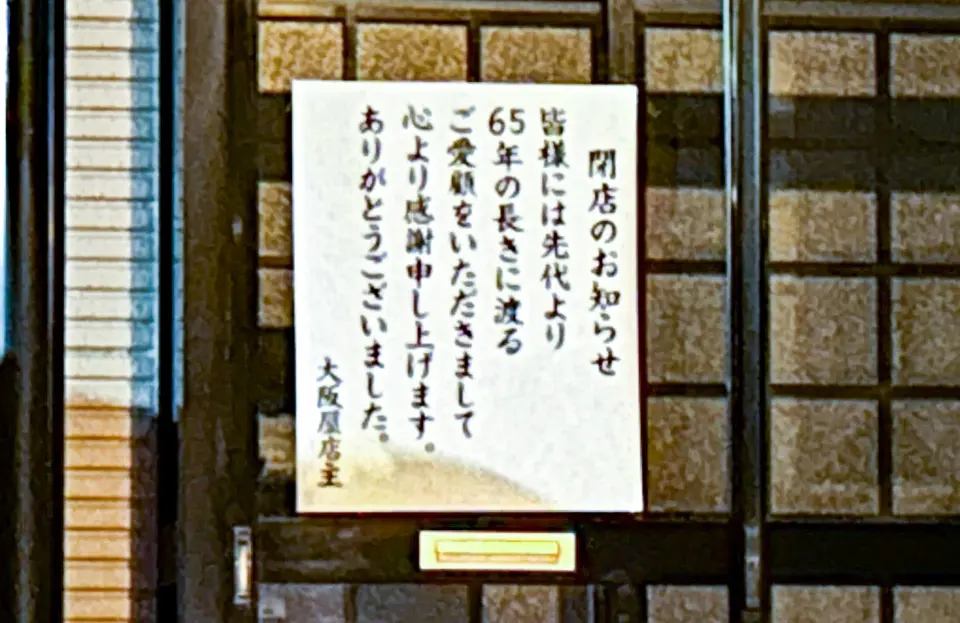 閉店のお知らせ
皆様には先代より
65年の長きに渡る
ご愛顧をいただきまして
心より感謝申し上げます。
ありがとうございました。
大阪屋店主